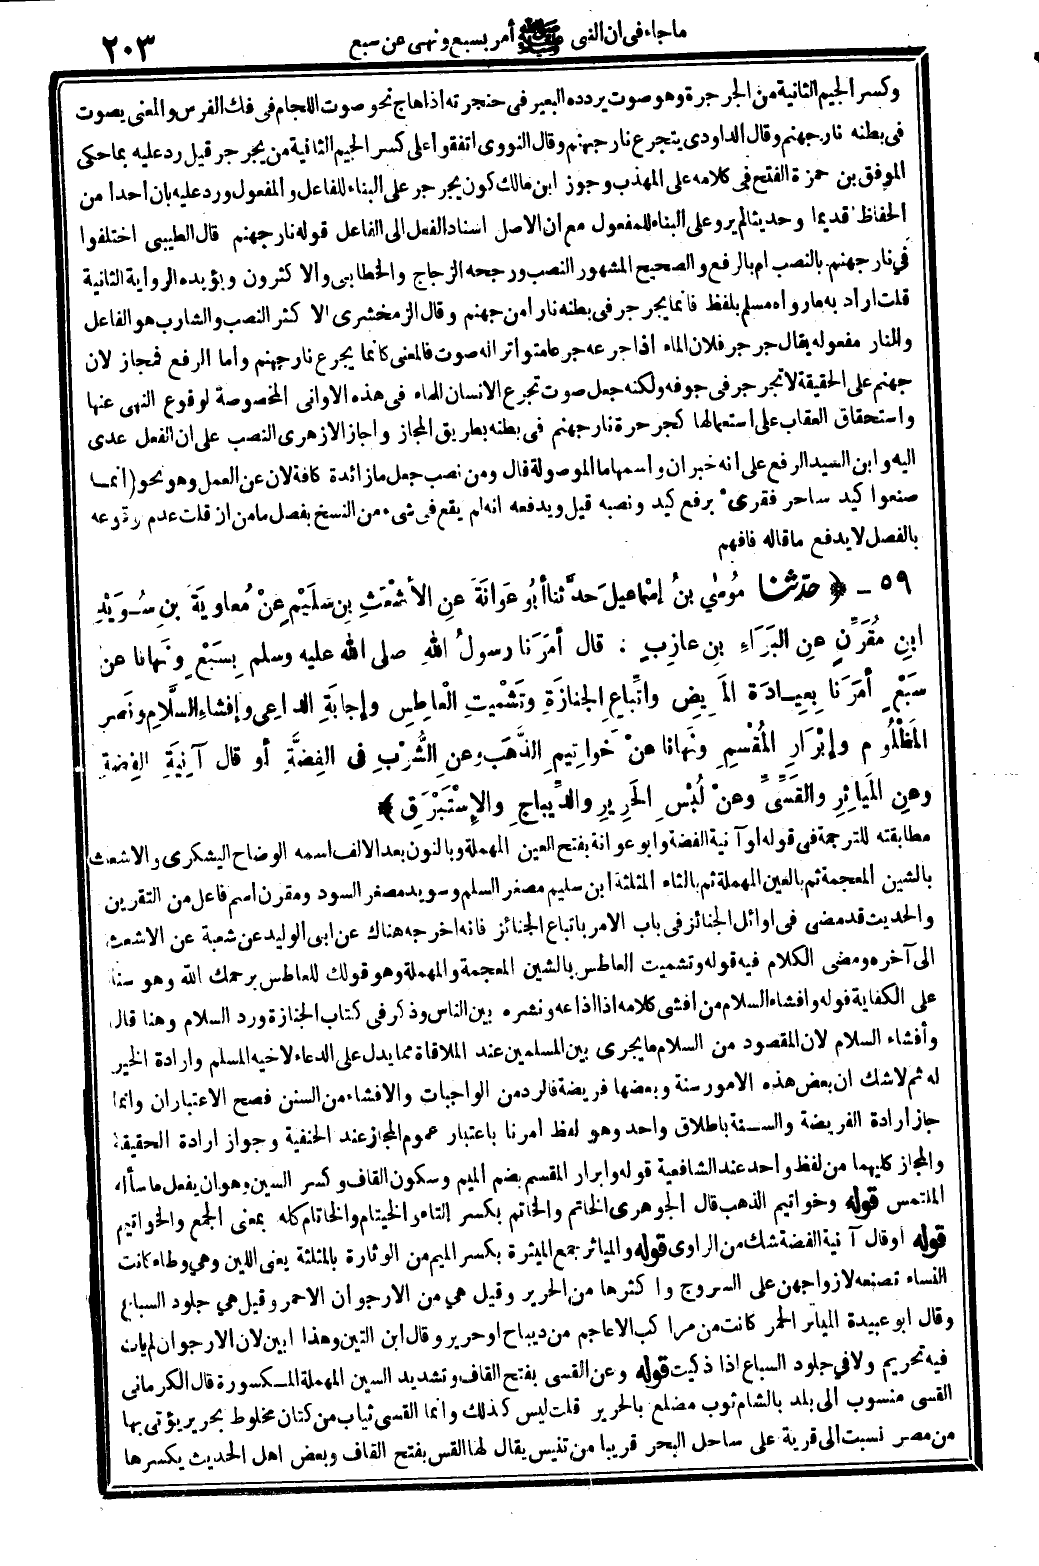 ما جاء في ان النبي ﷺ أمر بسبع ونهى عن سبع
٢٠٣
وكسر الجيم الثانية من الجرجرة وهو صوت يردده البعير في حنجرته اذا هاج نحو صوت اللجام في فك الفرس والمعنى يصوت
في بطنه نار جهنم وقال الداودي يتجرع نار جهنم وقال النووي اتفقوا على كسر الجيم الثانية من يجرجر قيل رد عليه بما حكى
الموفق بن حمزة الفتح في كلامه على المهذب وجوز ابن مالك كون يجرجر على البناء للفاعل والمفعول ورد عليه بان أحدا من
الحفاظ قديما وحديثا لم يرو على البناء للمفعول مع ان الاصل اسناد الفعل الى الفاعل قوله نار جهنم قال الطيبي اختلفوا
في نار جهنم بالنصب ام بالرفع والصحيح المشهور النصب ورجحه الزجاج والخطابي والاكثرون ويؤيده الرواية الثانية
قلت اراد به مارواه مسلم بلفظ فانما يجرجر في بطنه نارا من جهنم وقال الزمخشري الاكثر النصب والشارب هو الفاعل
والنار مفعوله يقال جرجر فلان الماء اذا جرعه جرعا متواترا له صوت فالمعنى كانما يجرع نار جهنم وأما الرفع فمجاز لان
جهنم على الحقيقة لا تجرجر في جوفه ولكنه جعل صوت تجرع الانسان للماء في هذه الاواني المخصوصة لوقوع النهي عنها
واستحقاق العقاب على استعمالها كجرجرة نار جهنم في بطنه بطريق المجاز واجاز الازهري النصب على ان الفعل عدى
اليه وابن السيد الرفع على انه خبر ان واسمها ما الموصولة قال ومن نصب جعل ما زائدة كافة لان عن العمل وهو نحو (انما
صنعوا كيد ساحر) فقرىء برفع كيد ونصبه قيل ويدفعه انه لم يقع في شيء من النسخ بفصل ما من ان قلت عدم وقوعه
بالفصل لا يدفع ما قاله فافهم
٥٩ - ﴿ حدثنا مُوسَى بنُ إسْماعِيلَ حَدَّثنا أبُو عَوَانَةَ عنِ الأشْعَثِ بنِ سُلَيْمٍ عنْ مُعاوِيَةَ بنِ سُوَيْدِ
ابنِ مُقَرِّنٍ عنِ البَرَاءِ بنِ عازِبٍ : قال أمَرَنا رسولُ اللهِ صلى الله عليه وسلم بِسَبْعٍ ونَهانا عنْ
سَبْعٍ أمَرَنا بِعِيادَةِ المَرِيضِ واتِّباعِ الجنازَةِ وتَشْمِيتِ الْعاطِسِ وإجابَةِ الداعِي وإفْشاءِ السلَّامِ ونَصْرِ
المَظْلُومِ وإبْرَارِ المُقْسِمِ ونَهانا عنْ خَواتِيمِ الذَّهَبِ وعنِ الشُّرْبِ فى الفِضَّةِ أو قال آنِيَةِ الفِضَّةِ
وعنِ المَياثِرِ والقَسِّيِّ وعنْ لُبْسِ الحَرِيرِ والدِّيباجِ والإسْتَبْرَقِ ﴾
مطابقته للترجمة في قوله او آنية الفضة وابو عوانة بفتح العين المهملة وبالنون بعد الالف اسمه الوضاح اليشكري والاشعث
بالشين المعجمة ثم بالعين المهملة ثم بالثاء المثلثة ابن سليم مصغر السلم وسويد مصغر السود ومقرن اسم فاعل من التقرين
والحديث قد مضى في اوائل الجنائز في باب الامر باتباع الجنائز فانه اخرجه هناك عن ابي الوليد عن شعبة عن الاشعث
الى آخره ومضى الكلام فيه قوله وتشميت العاطس بالشين المعجمة والمهملة وهو قولك للعاطس يرحمك الله وهو سنة
على الكفاية قوله وافشاء السلام من افشى كلامه اذا اذاعه ونشره بين الناس وذكر في كتاب الجنازة ورد السلام وهنا قال
وأفشاء السلام لان المقصود من السلام ما يجري بين المسلمين عند الملاقاة مما يدل على الدعاء لاخيه المسلم وارادة الخير
له ثم لاشك ان بعض هذه الامور سنة وبعضها فريضة فالرد من الواجبات والافشاء من السنن فصح الاعتباران وانما
جاز ارادة الفريضة والسنة باطلاق واحد وهو لفظ امرنا باعتبار عموم المجاز عند الحنفية وجواز ارادة الحقيقة
والمجاز كليهما من لفظ واحد عند الشافعية قوله وابرار المقسم بضم الميم وسكون القاف وكسر السين وهو ان يفعل ما سأله
الملتمس قوله وخواتيم الذهب قال الجوهري الخاتم والخاتم بكسر التاء والخيتام والخاتام كله بمعنى الجمع والخواتيم
قوله او قال آنية الفضة شك من الراوي قوله والمياثر جمع الميثرة بكسر الميم من الوثارة بالمثلثة يعني اللين وهي وطاء كانت
النساء تصنعه لازواجهن على السروج واكثرها من الحرير وقيل هي من الارجوان الاحمر وقيل هي جلود السباع
وقال ابو عبيدة المياثر الحمر كانت من مراكب الاعاجم من ديباج او حرير وقال ابن التين وهذا ابين لان الارجوان لم يات
فيه تحريم ولا في جلود السباع اذا ذكيت قوله وعن القسى بفتح القاف وتشديد السين المهملة المكسورة قال الكرماني
القسى منسوب الى بلد بالشام ثوب مضلع بالحرير قلت ليس كذلك وانما القسى ثياب من كتان مخلوط بحرير يؤتى بها
من مصر نسبت الى قرية على ساحل البحر قريبا من تنيس يقال لها القس بفتح القاف وبعض اهل الحديث يكسرها